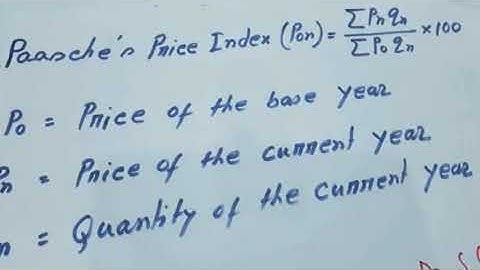 Paasche's Price Index (Pon) = ΣPnqn / ΣPoqn × 100
Po = Price of the base year
Pn = Price of the current year
n = Quantity of the current year